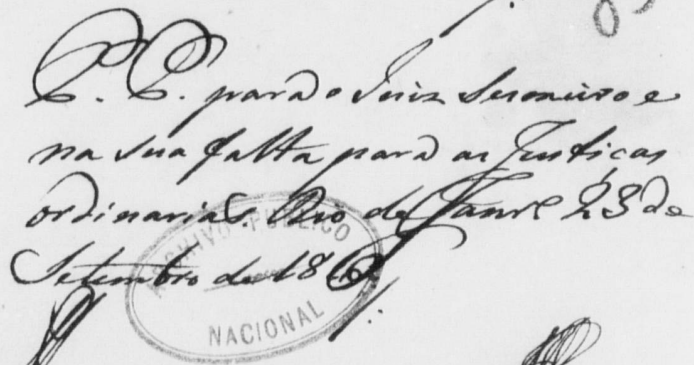 P. P. para o Juiz Sesmeiro e
na sua falta para as Justiças
ordinarias. Rio de Janr.º 23 de
Setembro de 18
ARCHIVO PUBLICO
NACIONAL